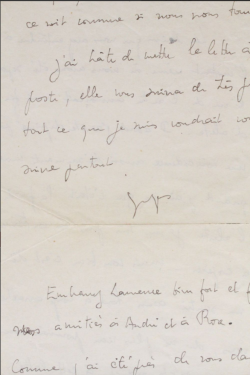 ce soit comme si nous nous tou
j'ai hâte de mettre la lettre à
poste, elle vous suivra de très
tout ce que je suis voudrait vo
suivre partout.
Embrassez Laurence bien fort et
mes amitiés à André et à Rose.
Comme j'ai été près de vous da